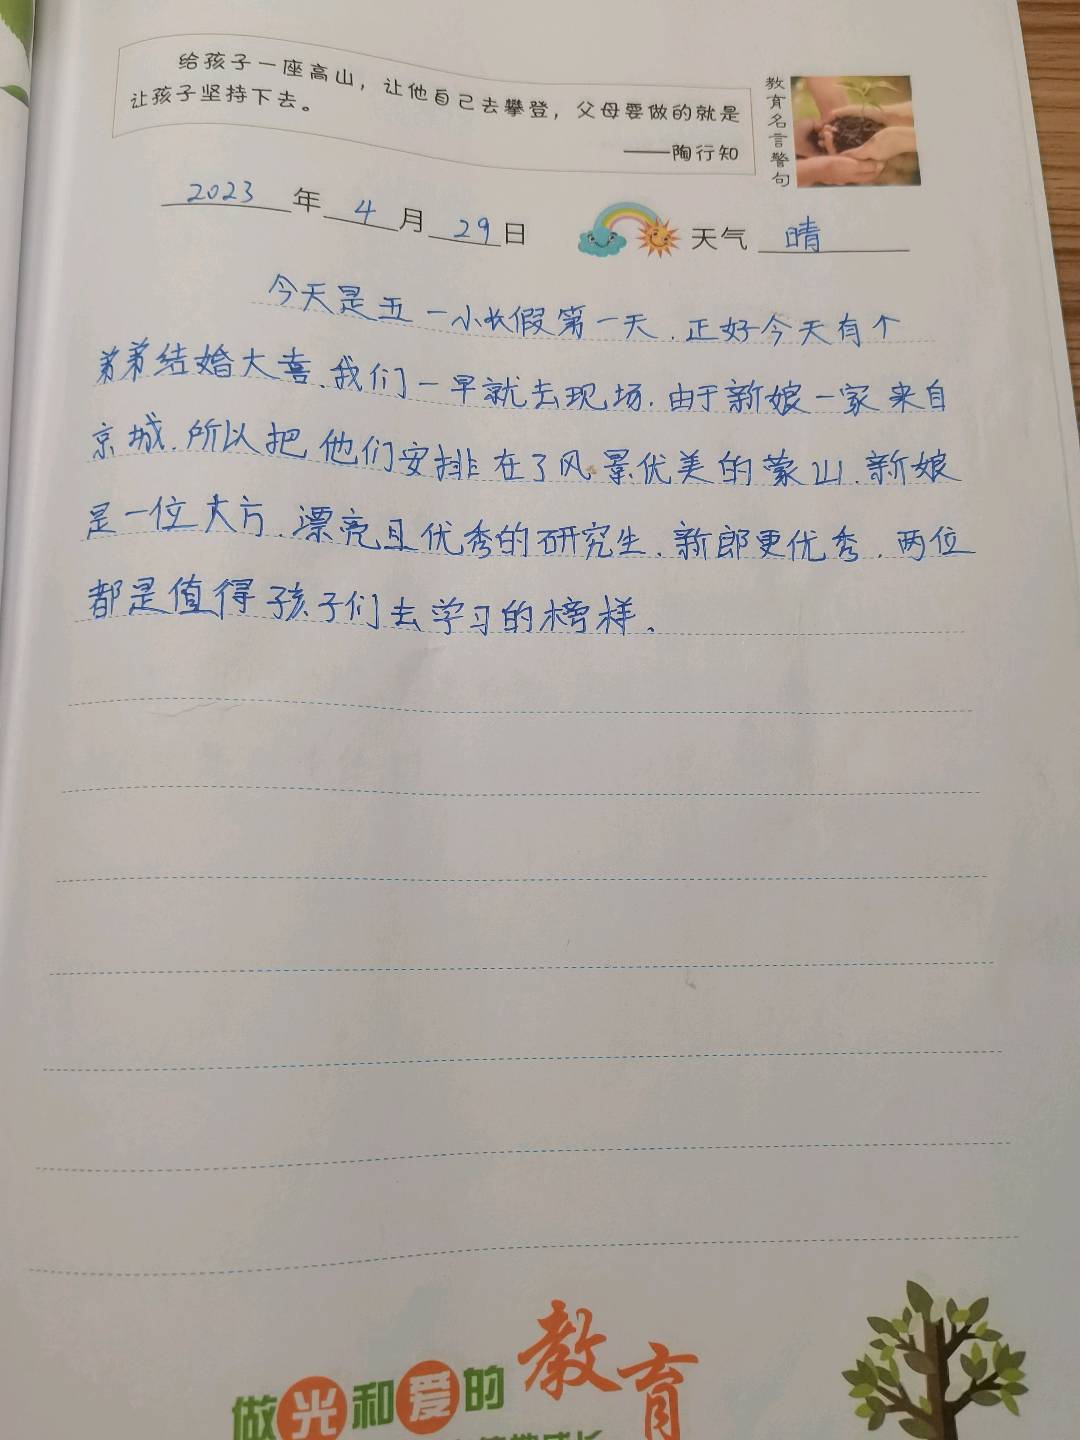 给孩子一座高山，让他自己去攀登，父母要做的就是
让孩子坚持下去。
——陶行知
教育名言警句
2023年4月29日 天气 晴
今天是五一小长假第一天.正好今天有个
弟弟结婚大喜.我们一早就去现场.由于新娘一家来自
京城.所以把他们安排在了风景优美的蒙山.新娘
是一位大方.漂亮且优秀的研究生.新郎更优秀.两位
都是值得孩子们去学习的榜样.
做光和爱的教育